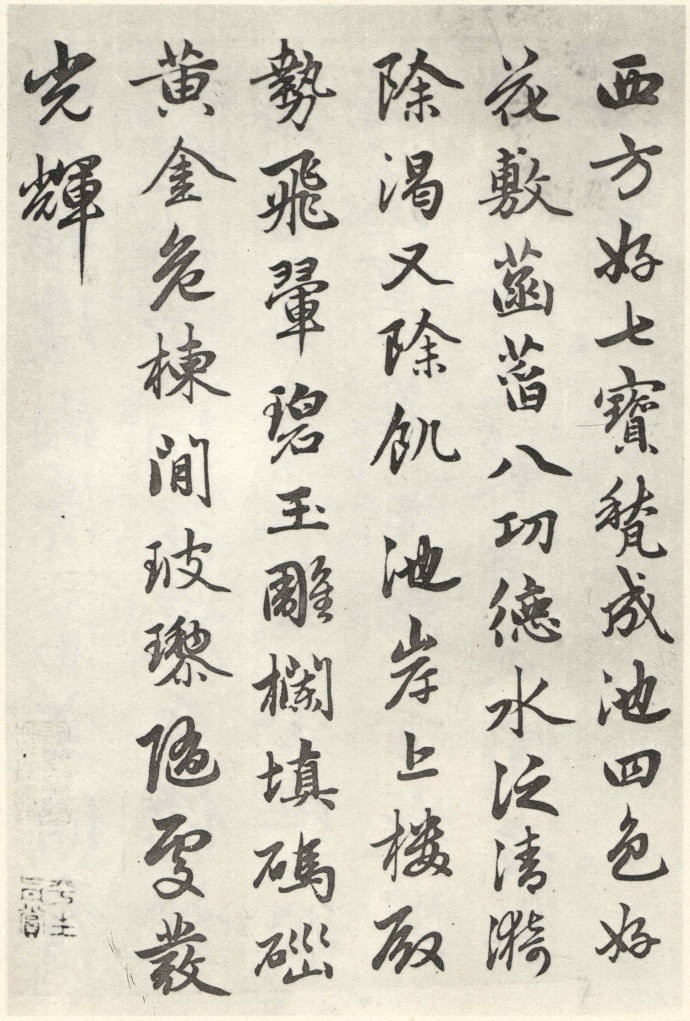 西方好七寶甃成池四色好
花敷菡萏八功德水泛清漪
除渴又除飢 池岸上樓殿
勢飛翬碧玉雕欄填碼碯
黃金危棟間玻瓈隨處叢
光輝